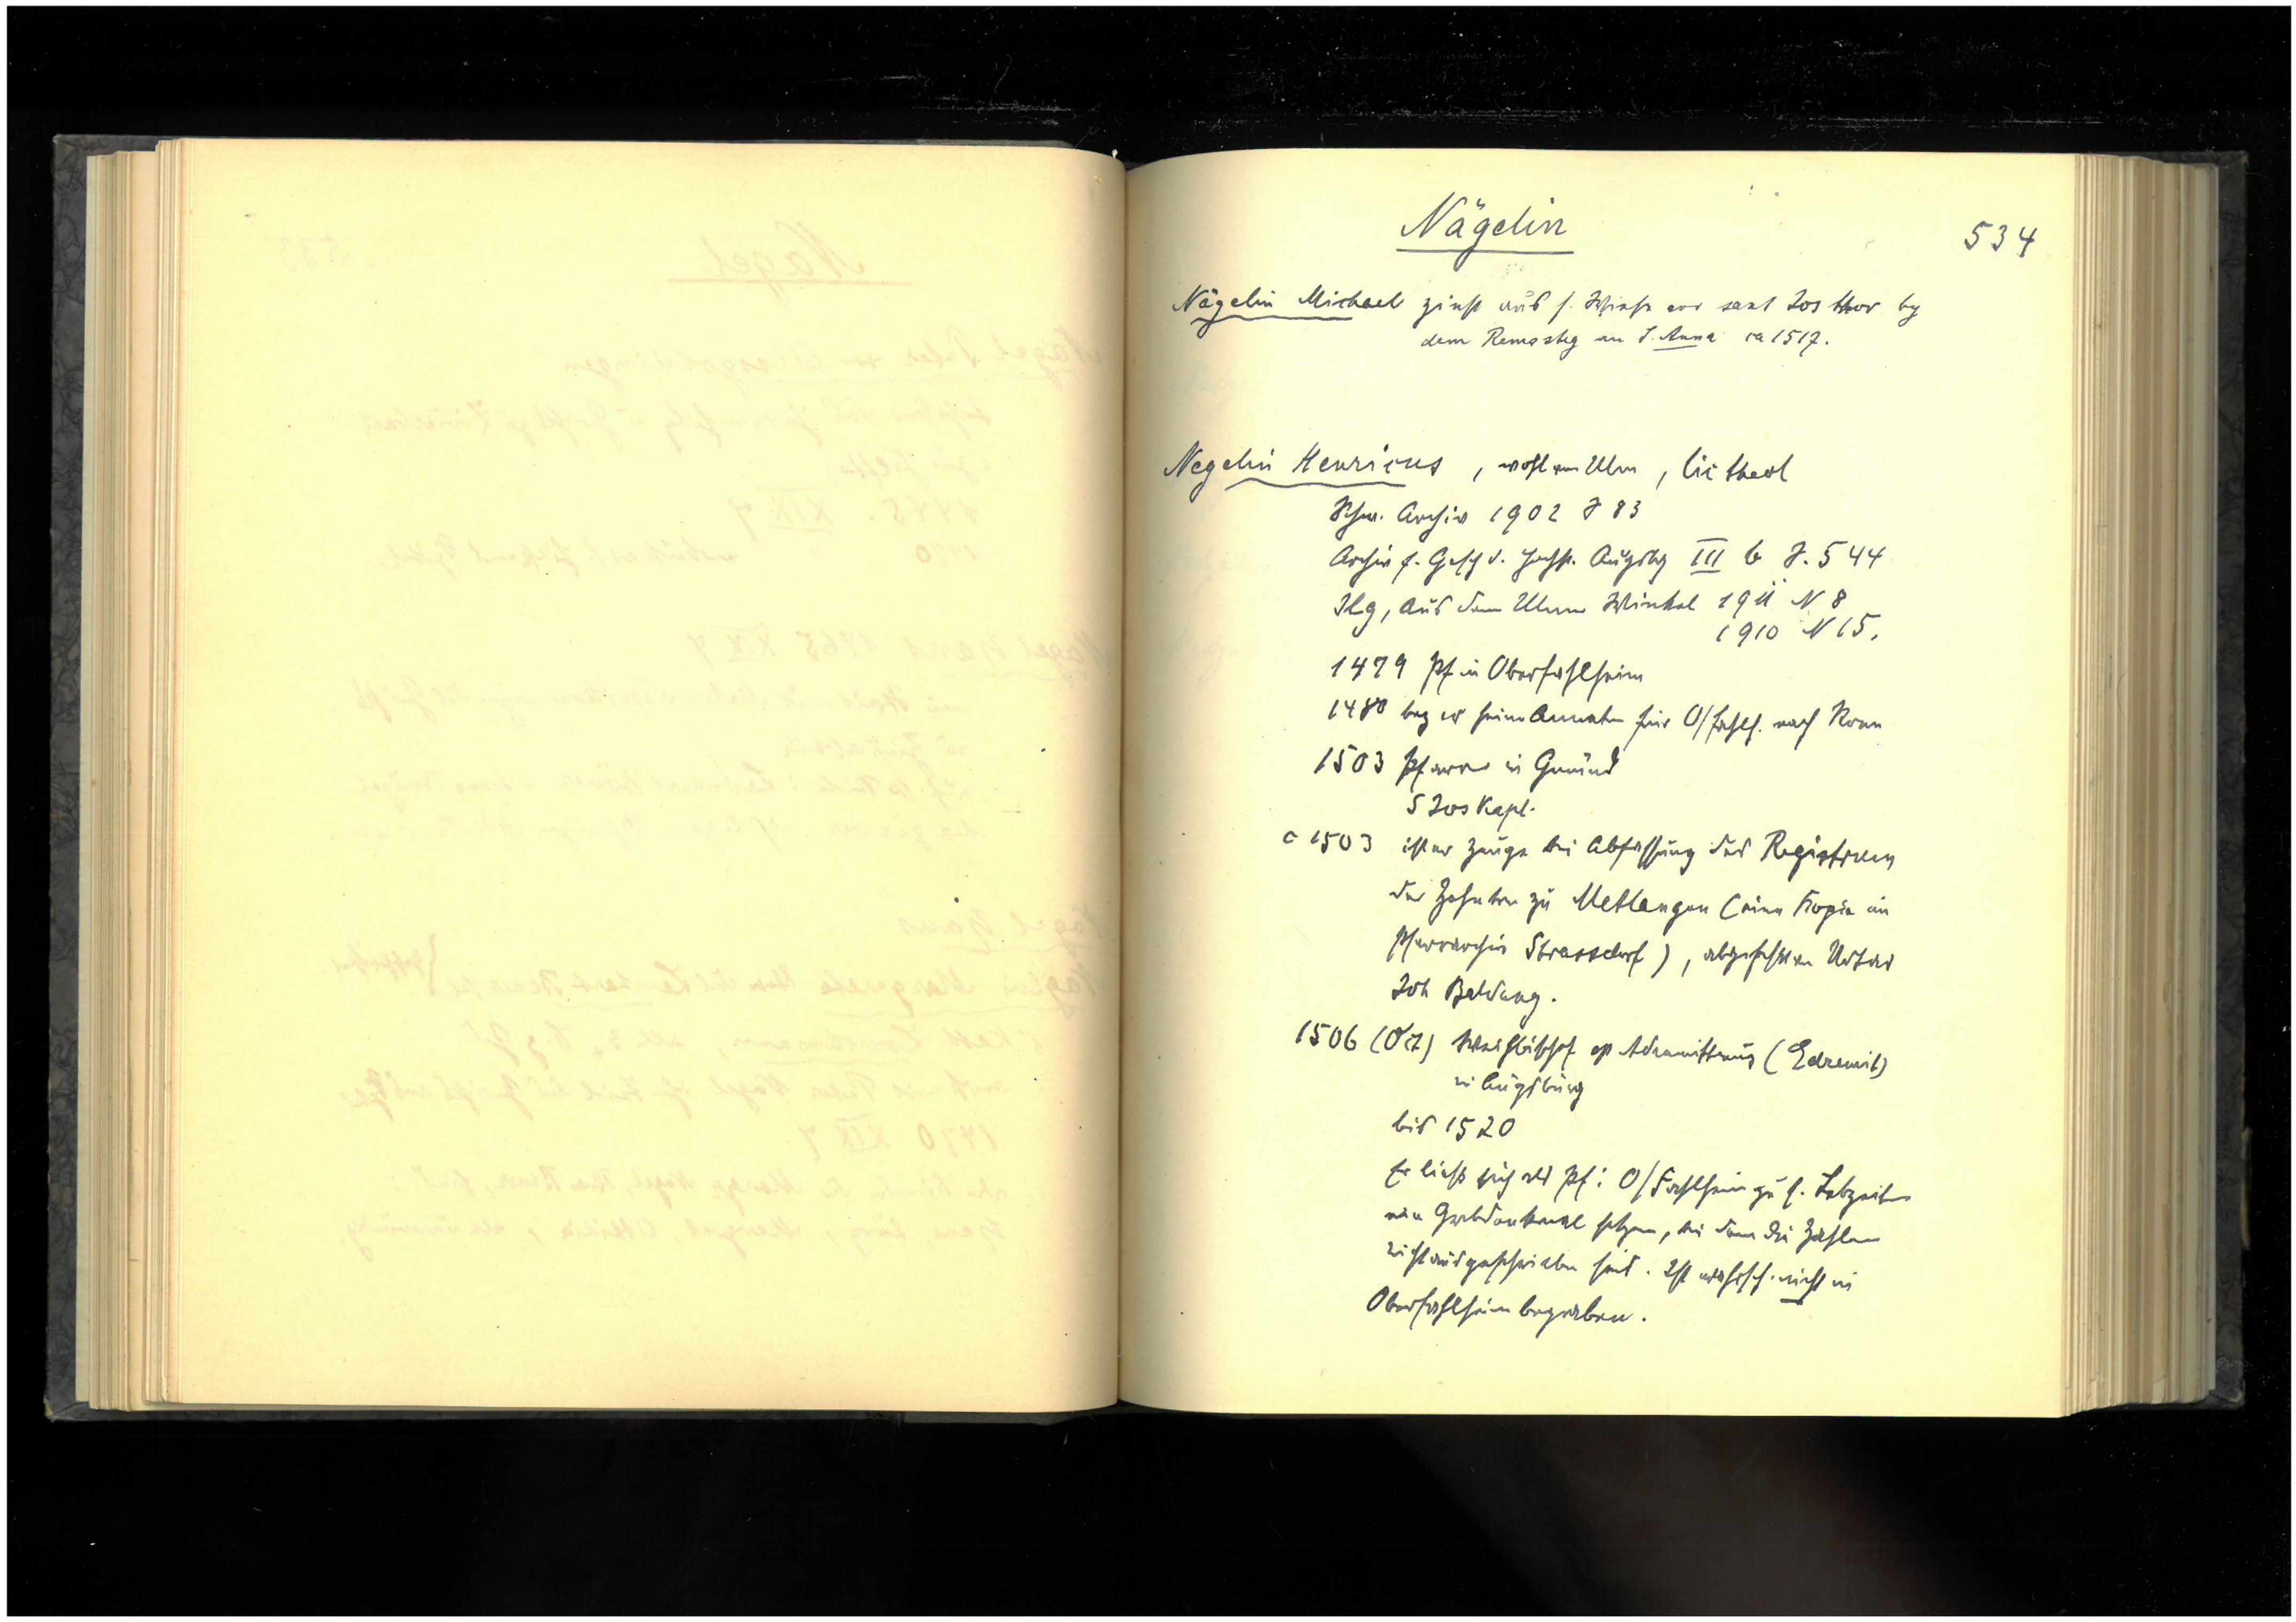 Nägelin
534
Nägelin Michael zinst aus s. Wiese vor sant Jos thor by
dem Remssteg an S. Anna ca 1517.
Negelin Henricus, wohl von Ulm, lic theol
Schw. Archiv 1902 S 83
Archiv f. Gesch d. Hochst. Augsbg III b S. 544
Ilg, Aus dem Ulmer Winkel 1911 N 8
1910 N 15.
1479 Pf in Oberfahlheim
1480 bez er seine Annaten für O/Fahlh. nach Rom
1503 Pfarrer in Gmünd
S Jos Kapl.
c 1503 ist er Zeuge bei Abfassung des Registrum
der Zehnten zu Metlangen (eine Kopie im
Pfarrarchiv Strassdorf), abgefasst von Notar
Joh Baldung.
1506 (Oct) Weihbischof ep Adramittenus (Edremit)
in Augsburg
bis 1520
Er liess sich als Pf. i O/Fahlheim zu s. Lebzeiten
ein Grabdenkmal setzen, bei dem die Zahlen
nicht ausgeschrieben sind. Ist wahrsch. nicht in
Oberfahlheim begraben.